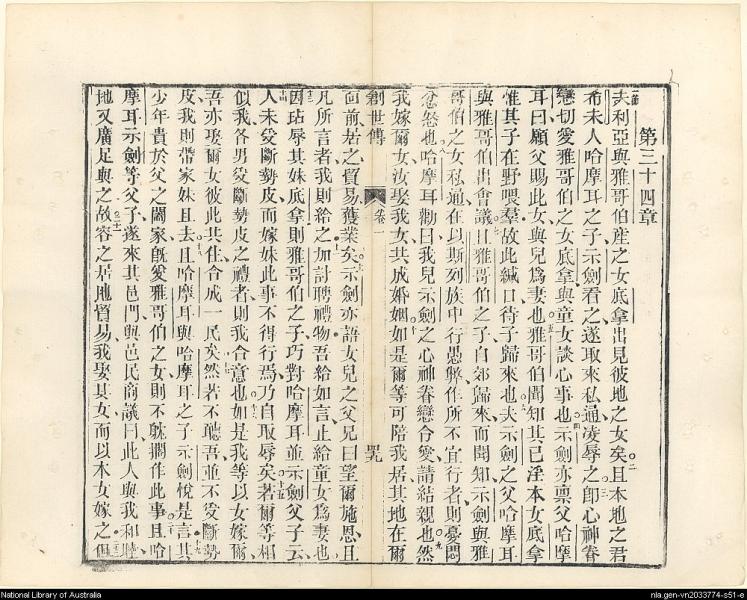 第三十四章
夫利亞與雅哥伯産之女底拿出見彼地之女矣且本地之君
希未人哈摩耳之子示劍看之遂取來私通凌辱之即心神眷
戀切愛雅哥伯之女底拿與童女談心事也示劍亦禀父哈摩
耳曰願父賜此女與兒爲妻也雅哥伯聞知其已淫本女底拿
惟其子在野喂羣故此緘口待子歸來也夫示劍之父哈摩耳
與雅哥伯出會議且雅哥伯之子自郊歸來而聞知示劍與雅
哥伯之女私通在以斯列族中行愚弊作所不宜行者則憂悶
忿怒也哈摩耳勸曰我兒示劍之心神眷戀令愛請結親也然
我嫁爾女汝娶我女共成婚姻如是爾等可陪我居其地在爾
創世傳 卷 四九
面前居之貿易獲業矣示劍亦語女兒之父兄曰望爾施恩且
凡所言者我則給之加討聘禮物吾給如言止給童女爲妻也
因玷辱其妹底拿則雅哥伯之子巧對哈摩耳並示劍父子云
人未受斷勢皮而嫁妹此事不得行焉乃自取辱矣若爾等相
似我各男受斷勢皮之禮者則我合意也如是我等以女嫁爾
吾亦娶爾女彼此共住合成一民矣然若不聽吾並不受斷勢
皮我則帶家妹且去且哈摩耳與哈摩耳之子示劍悅是言其
少年貴於父之闔家旣愛雅哥伯之女則不躭擱作此事且哈
摩耳示劍等父子遂來其邑門與邑民商議曰此人與我和睦
地又廣足與之故容之居地貿易我娶其女而以本女嫁之但
National Library of Australia
nla.gen-vn2033774-s51-e